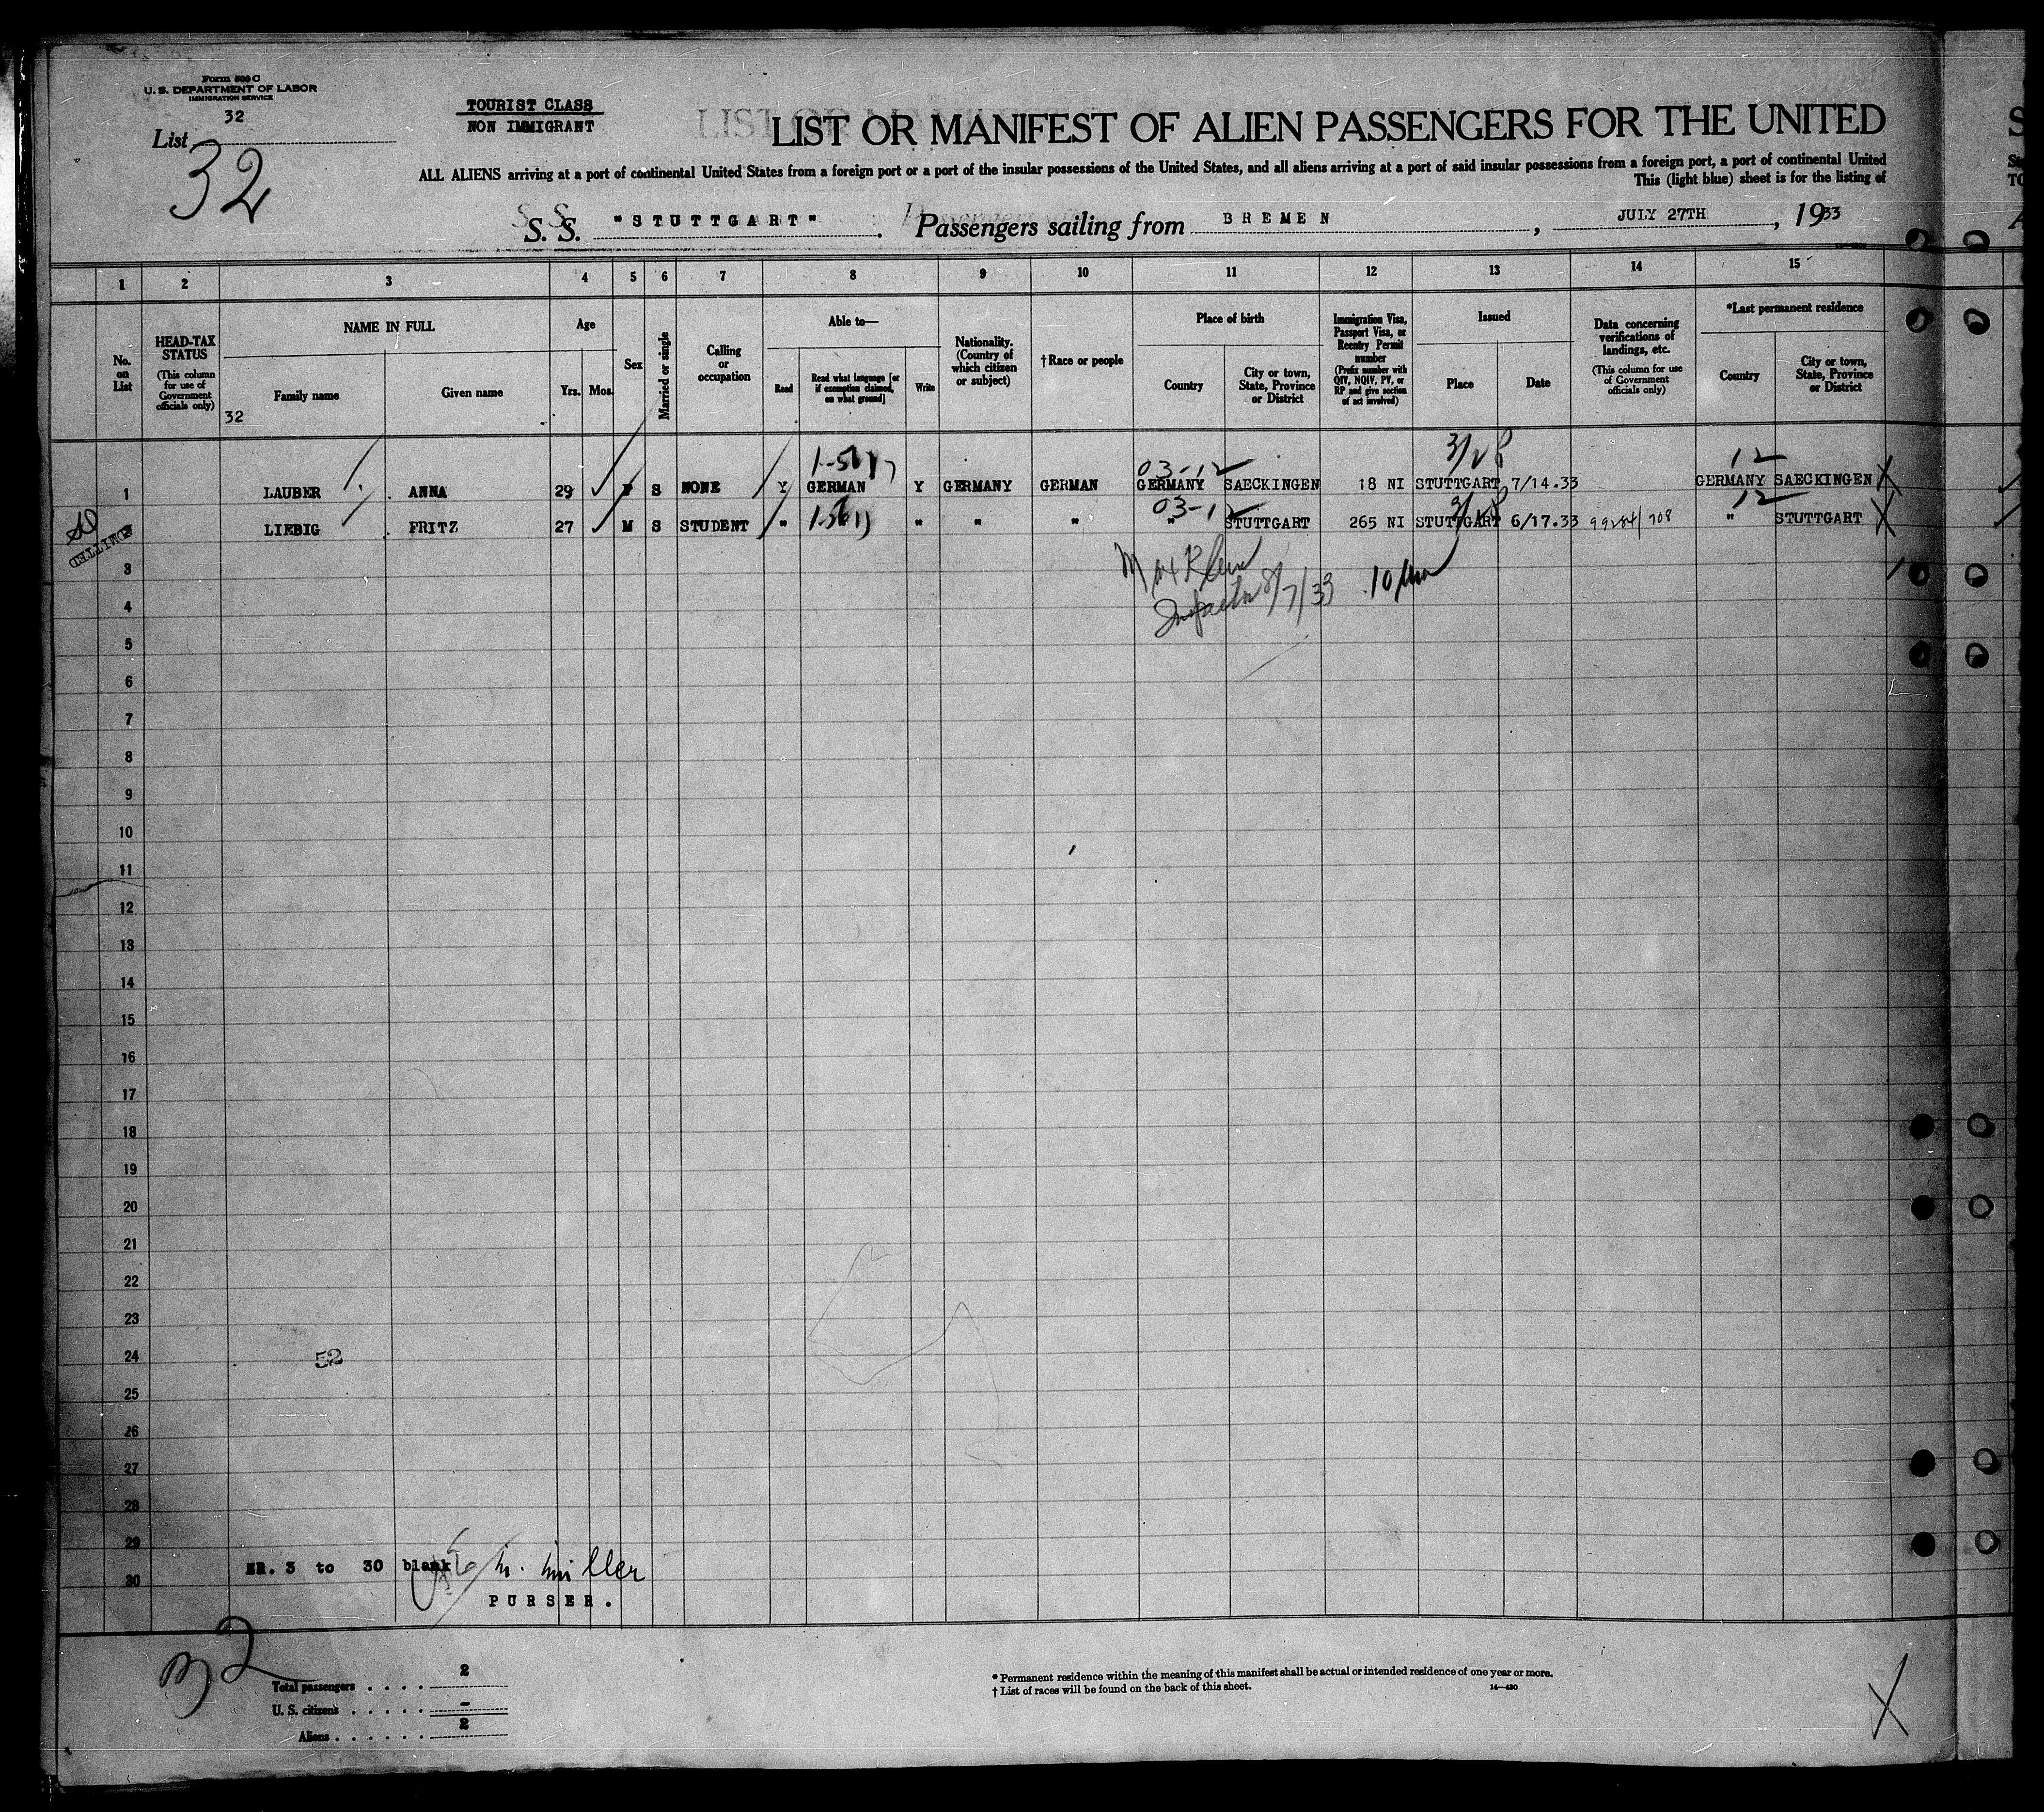 Form 500 C
U. S. DEPARTMENT OF LABOR
IMMIGRATION SERVICE
32
List
32
TOURIST CLASS
NON IMMIGRANT
LIST OR MANIFEST OF ALIEN PASSENGERS FOR THE UNITED
ALL ALIENS arriving at a port of continental United States from a foreign port or a port of the insular possessions of the United States, and all aliens arriving at a port of said insular possessions from a foreign port, a port of continental United
This (light blue) sheet is for the listing of
S. S. "STUTTGART". Passengers sailing from BREMEN, JULY 27TH, 1933
1 2 3 4 5 6 7 8 9 10 11 12 13 14 15
No. on List
HEAD-TAX STATUS
(This column for use of Government officials only)
NAME IN FULL
Family name
Given name
32
Age
Yrs. Mos.
Sex
Married or single
Calling or occupation
Able to—
Read
Read what language [or if exemption claimed, on what ground]
Write
Nationality. (Country of which citizen or subject)
† Race or people
Place of birth
Country
City or town, State, Province or District
Immigration Visa, Passport Visa, or Reentry Permit number
(Prefix number with QIV, NQIV, PV, or RP and give section of act involved)
Issued
Place
Date
Data concerning verifications of landings, etc.
(This column for use of Government officials only)
*Last permanent residence
Country
City or town, State, Province or District
03-12 3/28 12
1 LAUBER ANNA 29 F S NONE Y GERMAN Y GERMANY GERMAN GERMANY SAECKINGEN 18 NI STUTTGART 7/14.33 GERMANY SAECKINGEN X
03-12 12
2 LIEBIG FRITZ 27 M S STUDENT " " " " " STUTTGART 265 NI STUTTGART 6/17.33 99284/708 " STUTTGART X
3
Max Klein
Inspector 8/7/33
4
5
6
7
8
9
10
11
12
13
14
15
16
17
18
19
20
21
22
23
24
52
25
26
27
28
29
NR. 3 to 30 blank
30
PURSER.
32
Total passengers . . . . 2
U. S. citizens . . . . . -
Aliens . . . . . . 2
* Permanent residence within the meaning of this manifest shall be actual or intended residence of one year or more.
† List of races will be found on the back of this sheet.
14—430
X